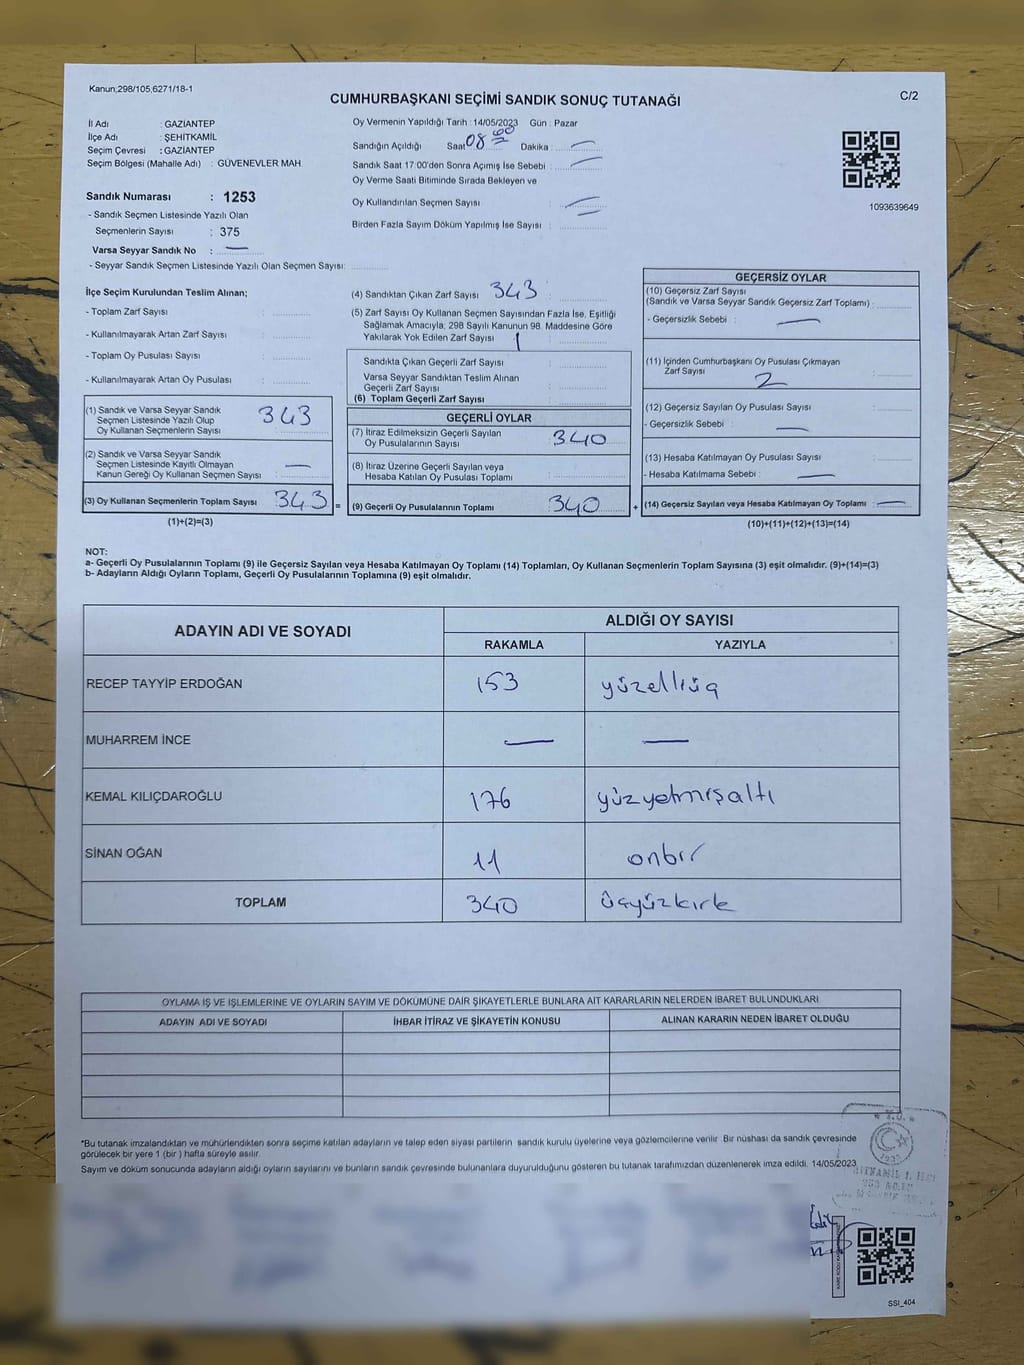 Kanun;298/105,6271/18-1
CUMHURBAŞKANI SEÇİMİ SANDIK SONUÇ TUTANAĞI
C/2
İl Adı : GAZİANTEP
İlçe Adı : ŞEHİTKAMİL
Seçim Çevresi : GAZİANTEP
Seçim Bölgesi (Mahalle Adı) : GÜVENEVLER MAH.
Sandık Numarası : 1253
- Sandık Seçmen Listesinde Yazılı Olan
Seçmenlerin Sayısı : 375
Varsa Seyyar Sandık No : —
- Seyyar Sandık Seçmen Listesinde Yazılı Olan Seçmen Sayısı:
Oy Vermenin Yapıldığı Tarih :14/05/2023 Gün : Pazar
Sandığın Açıldığı Saat 08 00 Dakika : —
Sandık Saat 17:00'den Sonra Açımış İse Sebebi : —
Oy Verme Saati Bitiminde Sırada Bekleyen ve
Oy Kullandırılan Seçmen Sayısı : —
Birden Fazla Sayım Döküm Yapılmış İse Sayısı :
1093639649
İlçe Seçim Kurulundan Teslim Alınan;
- Toplam Zarf Sayısı :
- Kullanılmayarak Artan Zarf Sayısı :
- Toplam Oy Pusulası Sayısı :
- Kullanılmayarak Artan Oy Pusulası :
(1) Sandık ve Varsa Seyyar Sandık
Seçmen Listesinde Yazılı Olup
Oy Kullanan Seçmenlerin Sayısı : 343
(2) Sandık ve Varsa Seyyar Sandık
Seçmen Listesinde Kayıtlı Olmayan
Kanun Gereği Oy Kullanan Seçmen Sayısı : —
(3) Oy Kullanan Seçmenlerin Toplam Sayısı : 343 =
(1)+(2)=(3)
(4) Sandıktan Çıkan Zarf Sayısı 343
(5) Zarf Sayısı Oy Kullanan Seçmen Sayısından Fazla İse, Eşitliği
Sağlamak Amacıyla; 298 Sayılı Kanunun 98. Maddesine Göre
Yakılarak Yok Edilen Zarf Sayısı
Sandıkta Çıkan Geçerli Zarf Sayısı :
Varsa Seyyar Sandıktan Teslim Alınan
Geçerli Zarf Sayısı :
(6) Toplam Geçerli Zarf Sayısı :
GEÇERLİ OYLAR
(7) İtiraz Edilmeksizin Geçerli Sayılan
Oy Pusulalarının Sayısı : 340
(8) İtiraz Üzerine Geçerli Sayılan veya
Hesaba Katılan Oy Pusulası Toplamı :
(9) Geçerli Oy Pusulalarının Toplamı : 340 +
GEÇERSİZ OYLAR
(10) Geçersiz Zarf Sayısı
(Sandık ve Varsa Seyyar Sandık Geçersiz Zarf Toplamı) :
- Geçersizlik Sebebi : —
(11) İçinden Cumhurbaşkanı Oy Pusulası Çıkmayan
Zarf Sayısı 2
(12) Geçersiz Sayılan Oy Pusulası Sayısı :
- Geçersizlik Sebebi : —
(13) Hesaba Katılmayan Oy Pusulası Sayısı :
- Hesaba Katılmama Sebebi : —
(14) Geçersiz Sayılan veya Hesaba Katılmayan Oy Toplamı : —
(10)+(11)+(12)+(13)=(14)
NOT:
a- Geçerli Oy Pusulalarının Toplamı (9) ile Geçersiz Sayılan veya Hesaba Katılmayan Oy Toplamı (14) Toplamları, Oy Kullanan Seçmenlerin Toplam Sayısına (3) eşit olmalıdır. (9)+(14)=(3)
b- Adayların Aldığı Oyların Toplamı, Geçerli Oy Pusulalarının Toplamına (9) eşit olmalıdır.
ADAYIN ADI VE SOYADI
ALDIĞI OY SAYISI
RAKAMLA YAZIYLA
RECEP TAYYİP ERDOĞAN 153 yüzelliüç
MUHARREM İNCE — —
KEMAL KILIÇDAROĞLU 176 yüzyetmişaltı
SİNAN OĞAN 11 onbir
TOPLAM 340 üçyüzkırk
OYLAMA İŞ VE İŞLEMLERİNE VE OYLARIN SAYIM VE DÖKÜMÜNE DAİR ŞİKAYETLERLE BUNLARA AİT KARARLARIN NELERDEN İBARET BULUNDUKLARI
ADAYIN ADI VE SOYADI İHBAR İTİRAZ VE ŞİKAYETİN KONUSU ALINAN KARARIN NEDEN İBARET OLDUĞU
*Bu tutanak imzalandıktan ve mühürlendikten sonra seçime katılan adayların ve talep eden siyasi partilerin sandık kurulu üyelerine veya gözlemcilerine verilir. Bir nüshası da sandık çevresinde
görülecek bir yere 1 (bir ) hafta süreyle asılır.
Sayım ve döküm sonucunda adayların aldığı oyların sayılarını ve bunların sandık çevresinde bulunanlara duyurulduğunu gösteren bu tutanak tarafımızdan düzenlenerek imza edildi. 14/05/2023
SSI_404